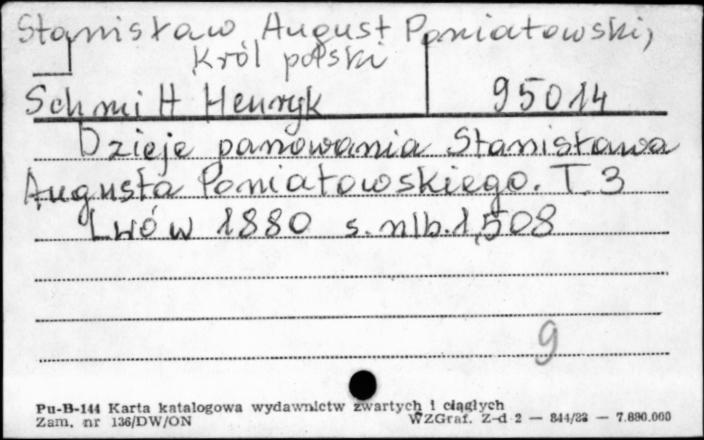 Stanisław August Poniatowski,
król polski
Schmitt Henryk 95014
Dzieje panowania Stanisława
Augusta Poniatowskiego. T. 3
Lwów 1880 s. nlb. 1, 508
9
Pu-B-144 Karta katalogowa wydawnictw zwartych i ciągłych
Zam. nr 136/DW/ON WZGraf. Z-d 2 — 844/83 — 7.680.000